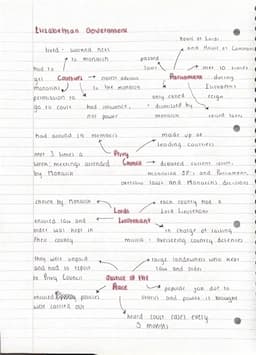 Elizabethan Government
House of Lords
and House of Commons
lived - worked next
to monarch
passed
laws
met 10 times
had to
get
monarch's
permission to
go to court
Courtiers
gave advice
to the monarch
had influence,
not power
Parliament
during
Elizabeth's
reign
only called
+ dismissed by
monarch
could raise
had around 19 members
made up of
leading courtiers
met 3 times a
week, meetings attended
by Monarch
Privy
Council
debated current issues,
monarchs JP's and Parliament,
oversaw laws and Monarch's decisions
chosen by Monarch
each county had a
Lord Lieutenant
Lords
Lieutenant
ensured law and
order was kept in
their county
in charge of raising
militia + overseeing county defences
they were unpaid
and had to report
to Privy Council
large landowners who kept
law and order
Justice of the
Peace
ensured policies
were carried out
popular job due to
status and power it brought
heard court cases every
3 months